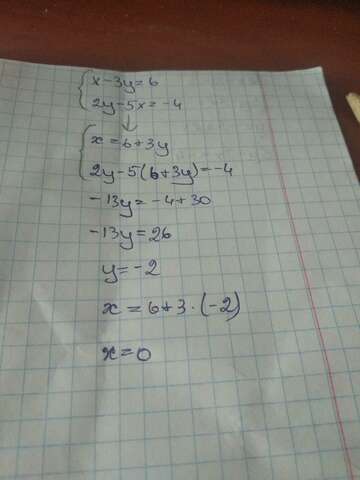 x-3y=6
2y-5x=-4
x=6+3y
2y-5(6+3y)=-4
-13y=-4+30
-13y=26
y=-2
x=6+3·(-2)
x=0